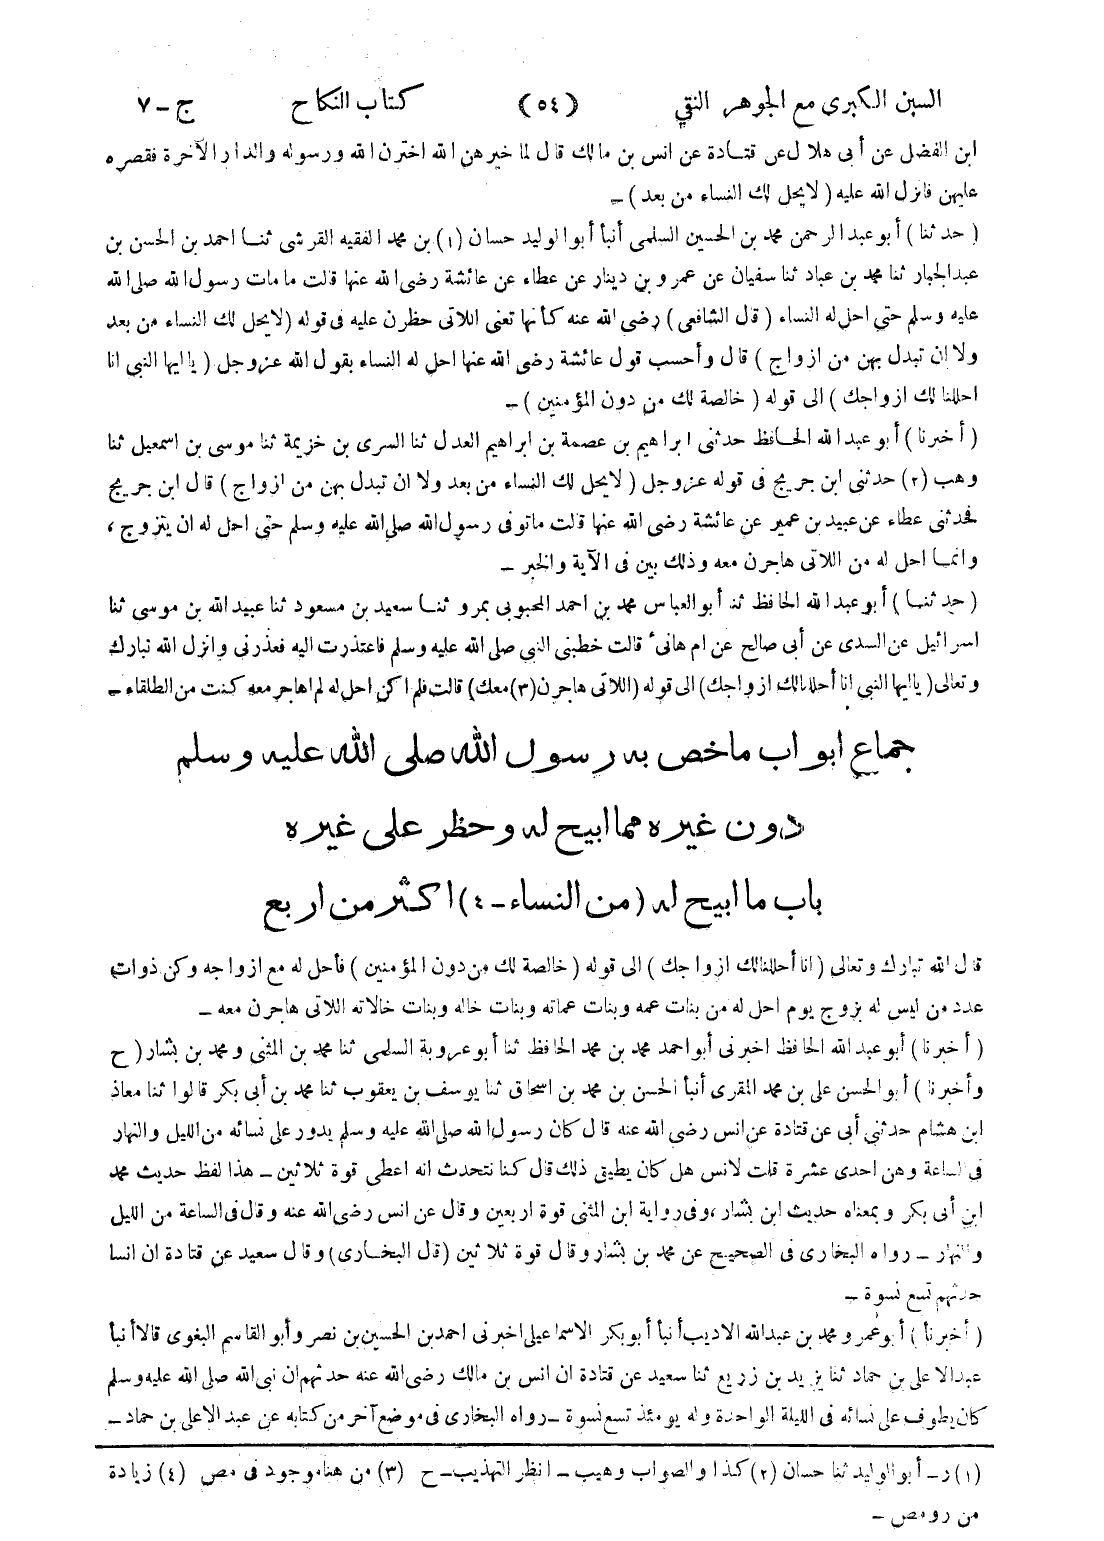 السنن الكبرى مع الجوهر النقي (٥٤) كتاب النكاح ج - ٧
ابن الفضل عن أبى هلال عن قتادة عن انس بن مالك قال لما خيرهن الله اخترن الله ورسوله والدار الآخرة فقصره
عليهن فانزل الله عليه ( لايحل لك النساء من بعد ) -
( حدثنا ) أبوعبدالرحمن محمد بن الحسين السلمى أنبأ أبوالوليد حسان (١) بن محمد الفقيه القرشى ثنا احمد بن الحسن بن
عبدالجبار ثنا محمد بن عباد ثنا سفيان عن عمرو بن دينار عن عطاء عن عائشة رضى الله عنها قالت ما مات رسول الله صلى الله
عليه وسلم حتى احل له النساء ( قال الشافعى ) رضى الله عنه كأنها تعنى اللاتى حظرن عليه فى قوله (لايحل لك النساء من بعد
ولا ان تبدل بهن من ازواج ) قال وأحسب قول عائشة رضى الله عنها احل له النساء بقول الله عزوجل ( ياايها النبى انا
احللنا لك ازواجك ) الى قوله ( خالصة لك من دون المؤمنين ) -
( أخبرنا ) أبو عبد الله الحافظ حدثنى ابراهيم بن عصمة بن ابراهيم العدل ثنا السرى بن خزيمة ثنا موسى بن اسمعيل ثنا
وهب (٢) حدثنى ابن جريج فى قوله عزوجل ( لايحل لك النساء من بعد ولا ان تبدل بهن من ازواج ) قال ابن جريج
فحدثنى عطاء عن عبيد بن عمير عن عائشة رضى الله عنها قالت ماتوفى رسول الله صلى الله عليه وسلم حتى احل له ان يتزوج ،
وانما احل له من اللاتى هاجرن معه وذلك بين فى الآية والخبر -
( حدثنا ) أبو عبد الله الحافظ ثنا أبوالعباس محمد بن احمد المحبوبى بمرو ثنا سعيد بن مسعود ثنا عبيد الله بن موسى ثنا
اسرائيل عن السدى عن أبى صالح عن ام هانىء قالت خطبنى النبى صلى الله عليه وسلم فاعتذرت اليه فعذرنى وانزل الله تبارك
وتعالى( ياايها النبى انا أحللنالك ازواجك) الى قوله (اللاتى هاجرن(٣)معك) قالت فلم اكن احل له لم اهاجر معه كنت من الطلقاء -
جماع ابواب ماخص به رسول الله صلى الله عليه وسلم
دون غيره مما ابيح له وحظر على غيره
باب ما ابيح له (من النساء-٤) اكثر من اربع
قال الله تبارك وتعالى ( انا أحللنالك ازواجك ) الى قوله ( خالصة لك من دون المؤمنين ) فأحل له مع ازواجه وكن ذوات
عدد من ليس له بزوج يوم احل له من بنات عمه وبنات عماته وبنات خاله وبنات خالاته اللاتى هاجرن معه -
( أخبرنا ) أبو عبد الله الحافظ اخبرنى أبواحمد محمد بن محمد الحافظ ثنا أبوعروبة السلمى ثنا محمد بن المثنى ومحمد بن بشار ( ح
وأخبرنا ) أبوالحسن على بن محمد المقرى أنبأ الحسن بن محمد بن اسحاق ثنا يوسف بن يعقوب ثنا محمد بن أبى بكر قالوا ثنا معاذ
ابن هشام حدثنى أبى عن قتادة عن انس رضى الله عنه قال كان رسول الله صلى الله عليه وسلم يدور على نسائه من الليل والنهار
فى الساعة وهن احدى عشرة قلت لانس هل كان يطيق ذلك قال كنا نتحدث انه اعطى قوة ثلاثين - هذا لفظ حديث محمد
ابن أبى بكر وبمعناه حديث ابن بشار ،وفى رواية ابن المثنى قوة اربعين وقال عن انس رضى الله عنه وقال فى الساعة من الليل
والنهار - رواه البخارى فى الصحيح عن محمد بن بشار وقال قوة ثلاثين (قال البخارى) وقال سعيد عن قتادة ان انسا
حدثهم تسع نسوة -
( أخبرنا ) أبو عمرو محمد بن عبدالله الاديب أنبأ أبوبكر الاسماعيلى اخبرنى احمد بن الحسين بن نصر وأبو القاسم البغوى قالا أنبأ
عبدالاعلى بن حماد ثنا يزيد بن زريع ثنا سعيد عن قتادة ان انس بن مالك رضى الله عنه حدثهم ان نبى الله صلى الله عليه وسلم
كان يطوف على نسائه فى الليلة الواحدة وله يومئذ تسع نسوة - رواه البخارى فى موضع آخر من كتابه عن عبد الاعلى بن حماد -
(١) ر - أبو الوليد ثنا حسان (٢) كذا والصواب وهيب - انظر التهذيب - ح (٣) من هنا موجود فى مص (٤) زيادة
من ر ومص -